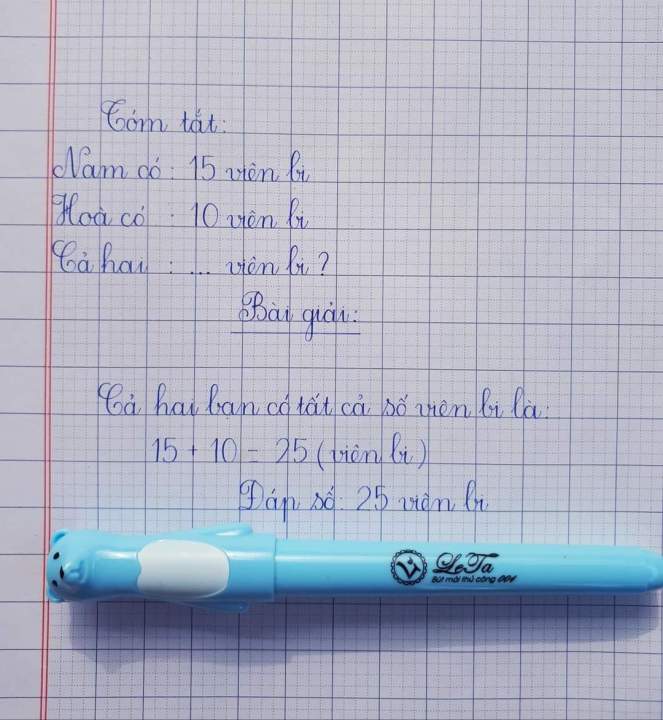 Tóm tắt:
Nam có: 15 viên bi
Hoà có : 10 viên bi
Cả hai : ... viên bi?
Bài giải:
Cả hai bạn có tất cả số viên bi là:
15 + 10 = 25 (viên bi)
Đáp số: 25 viên bi
LeTa
Bút mài thủ công 004